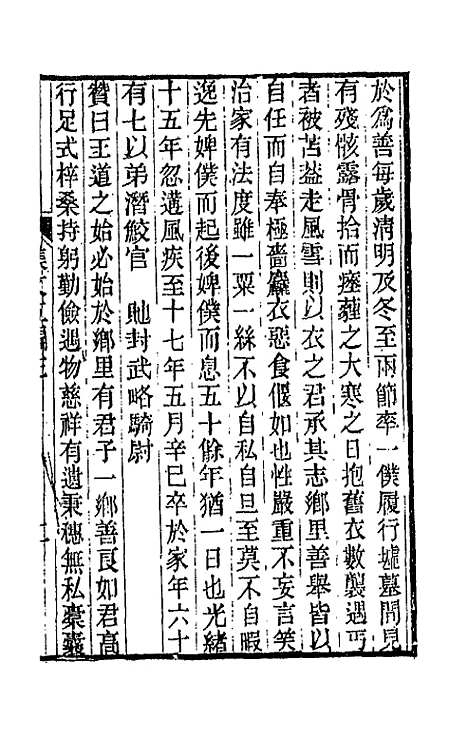 於爲善每歲清明及冬至兩節率一僕履行墟墓間見
有殘骸露骨拾而瘞薶之大寒之日抱舊衣數襲遇丐
者被苫蓋走風雪則以衣之君承其志鄉里善舉皆以
自任而自奉極嗇麤衣惡食偃如也性嚴重不妄言笑
治家有法度雖一粟一絲不以自私自旦至莫不自暇
逸先婢僕而起後婢僕而息五十餘年猶一日也光緒
十五年忽遘風疾至十七年五月辛巳卒於家年六十
有七以弟潛鮫官 貤封武略騎尉
贊曰王道之始必始於鄉里有君子一鄉善良如君高
行足式梓桑持躬勤儉遇物慈祥有遺秉穗無私橐囊